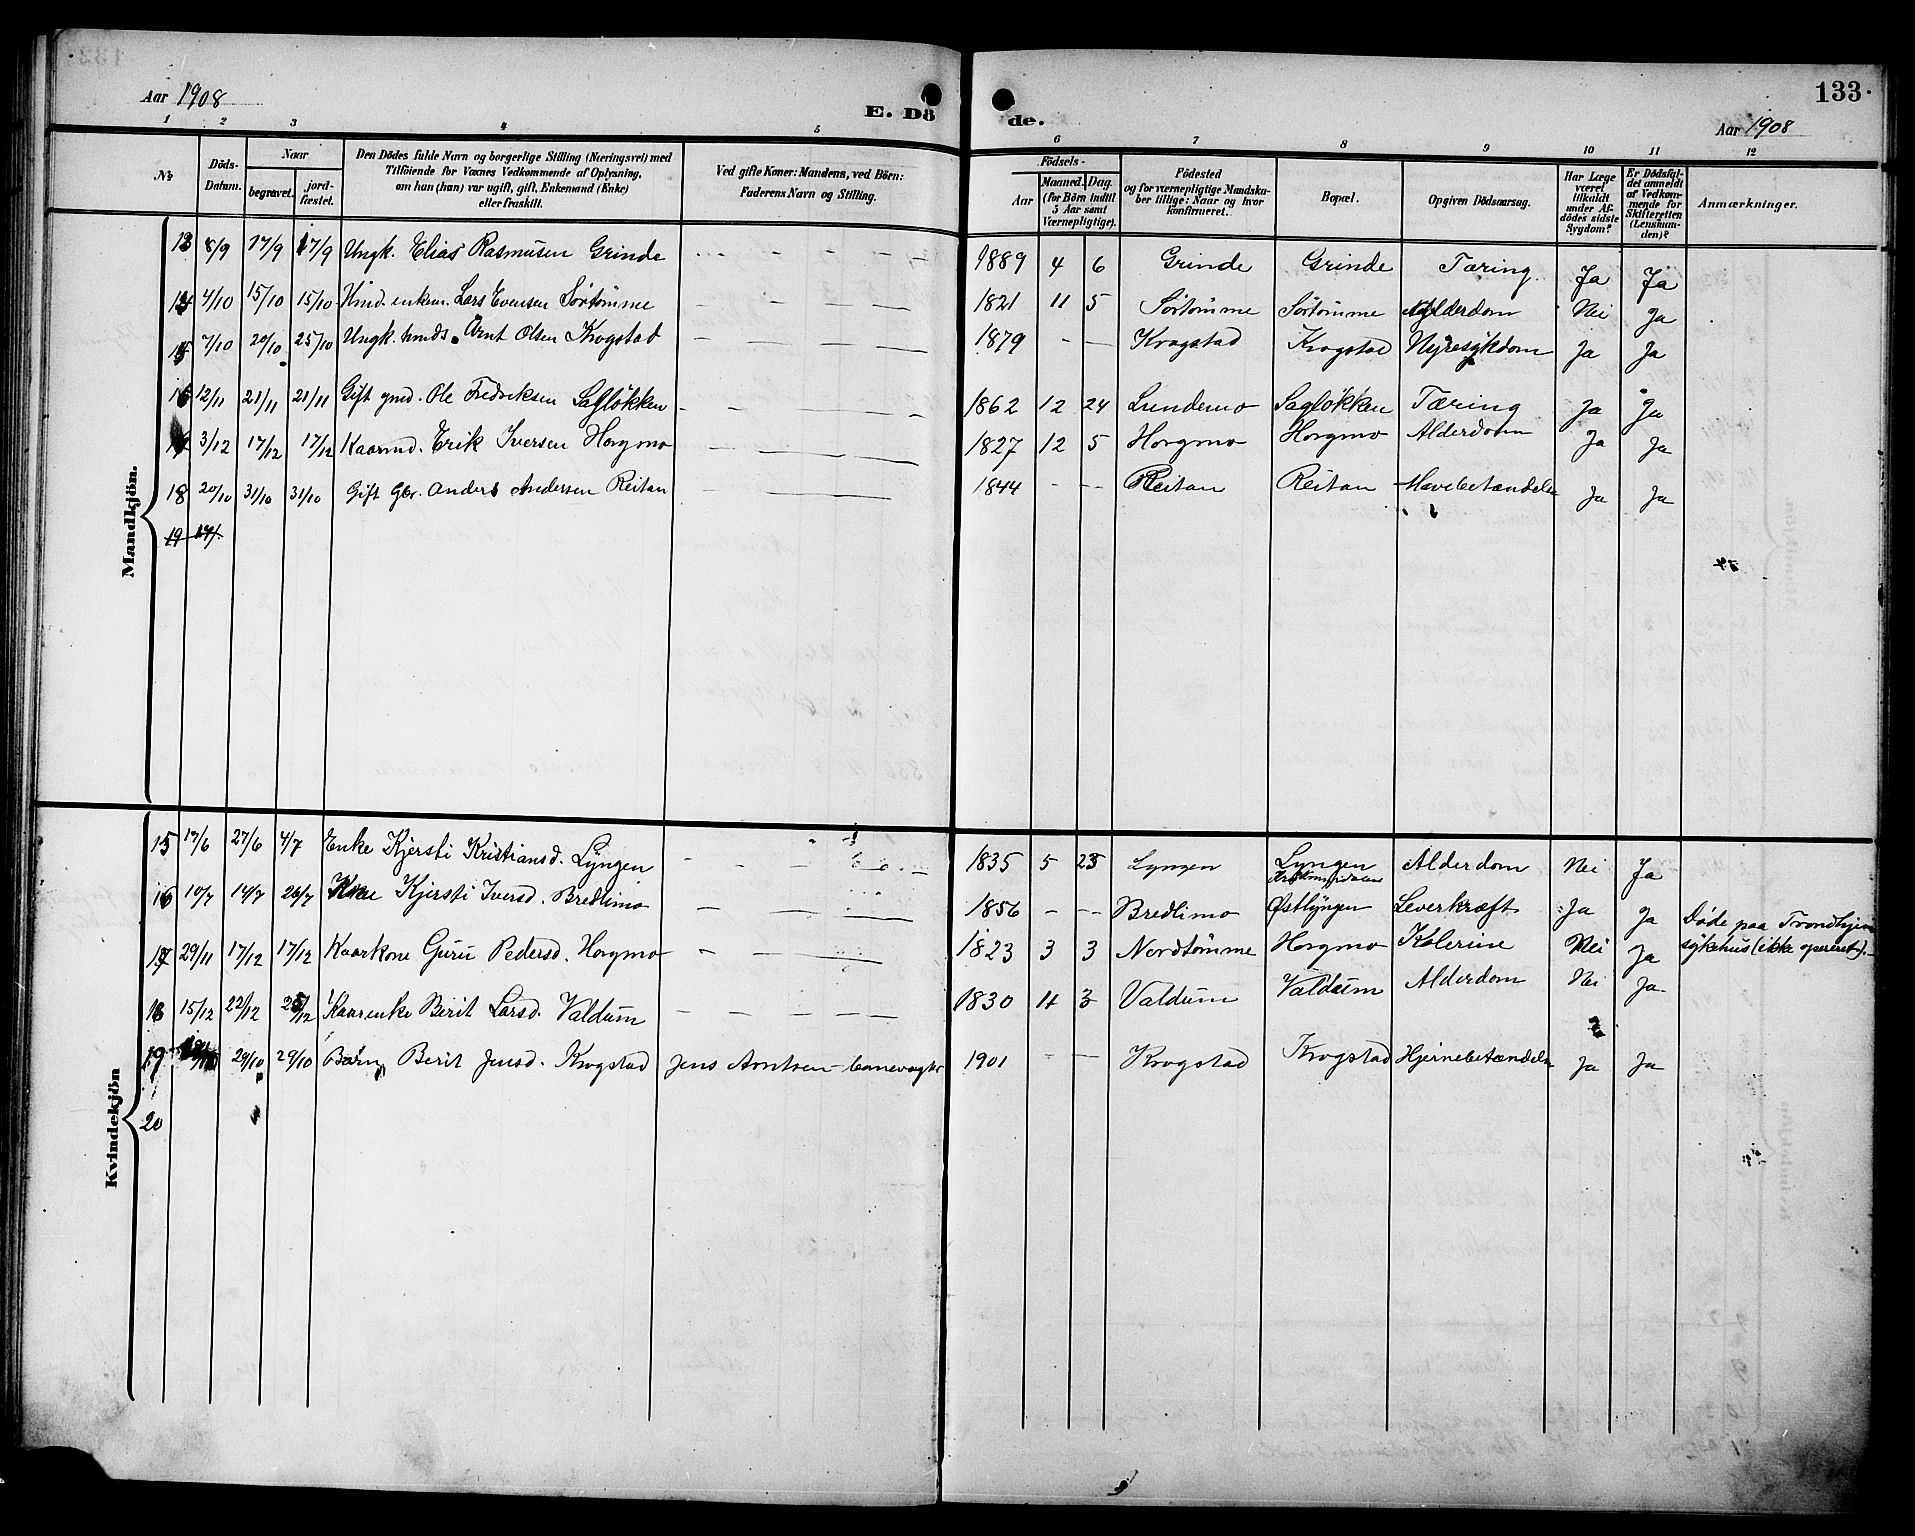 133.
Aar 1908
E. Dö
de.
Aar 1908
1 2 3 4 5 6 7 8 9 10 11 12
No
Döds-Datum.
Naar
begravet.
jord-fæstet.
Den Dödes fulde Navn og borgerlige Stilling (Næringsvei) med
Tilföiende for Voxnes Vedkommende af Oplysning,
om han (hun) var ugift, gift, Enkemand (Enke)
eller fraskilt.
Ved gifte Koner: Mandens, ved Börn:
Faderens Navn og Stilling.
Födsels-
Aar
Maaned. Dag.
(for Börn indtil
5 Aar samt
Værnepligtige).
Födested
og for værnepligtige Mandska-
ber tillige: Naar og hvor
konfirmeret.
Bopæl.
Opgiven Dödsaarsag.
Har Læge
været
tilkaldt
under Af-
dödes sidste
Sygdom?
Er Dödsfal-
det anmeldt
af Vedkom-
mende for
Skifteretten
(Lensman-
den)?
Anmærkninger.
Mandkjön.
13 8/9 17/9 17/9 Ungk. Elias Rasmusen Grinde — — — — 1889 4 6 Grinde Grinde Tæring Ja Ja
14 4/10 15/10 15/10 Kind. enkem. Lars Evensen Sörtömme — — — — 1821 11 5 Sörtömme Sörtömme Alderdom Nei Ja
15 7/10 20/10 25/10 Ungk. hmds. Arnt Olsen Krogstad — — — — 1879 — — Krogstad Krogstad Nyresykdom Ja Ja
16 12/11 21/11 21/11 Gift gmd. Ole Fredriksen Sagløkken — — — — 1862 12 24 Lundemo Sagløkken Tæring Ja Ja
17 3/12 17/12 17/12 Kaarmd. Erik Iversen Horgmo — — — — 1827 12 5 Horgmo Horgmo Alderdom Ja Ja
18 20/10 31/10 31/10 Gift Gbr. Anders Andersen Reitan — — — — 1844 — — Reitan Reitan Mavebetændelse Ja Ja
19
Kvindekjön
15 17/6 27/6 4/7 Enke Kjersti Kristiansd. Lyngen — — — — 1835 5 25 Lyngen Lyngen Alderdom Nei Ja
16 10/7 14/7 26/7 Kone Kjersti Iversd. Bredlimo — — — — 1856 — — Bredlimo Østlyngen Leverkræft Ja Ja Døde paa Trondhjem
sykehus (ikke opereret).
17 29/11 17/12 17/12 Kaarkone Guru Pedersd. Horgmo — — — — 1823 3 3 Nordtømme Horgmo Kolerine Nei Ja
18 15/12 22/12 25/12 Kaarenke Berit Larsd. Valdum — — — — 1830 11 3 Valdum Valdum Alderdom Nei Ja
19 29/10 29/10 Barn Berit Jensd. Krogstad Jens Arntsen banevogter 1901 — — Krogstad Krogstad Hjernebetændelse Ja Ja
20